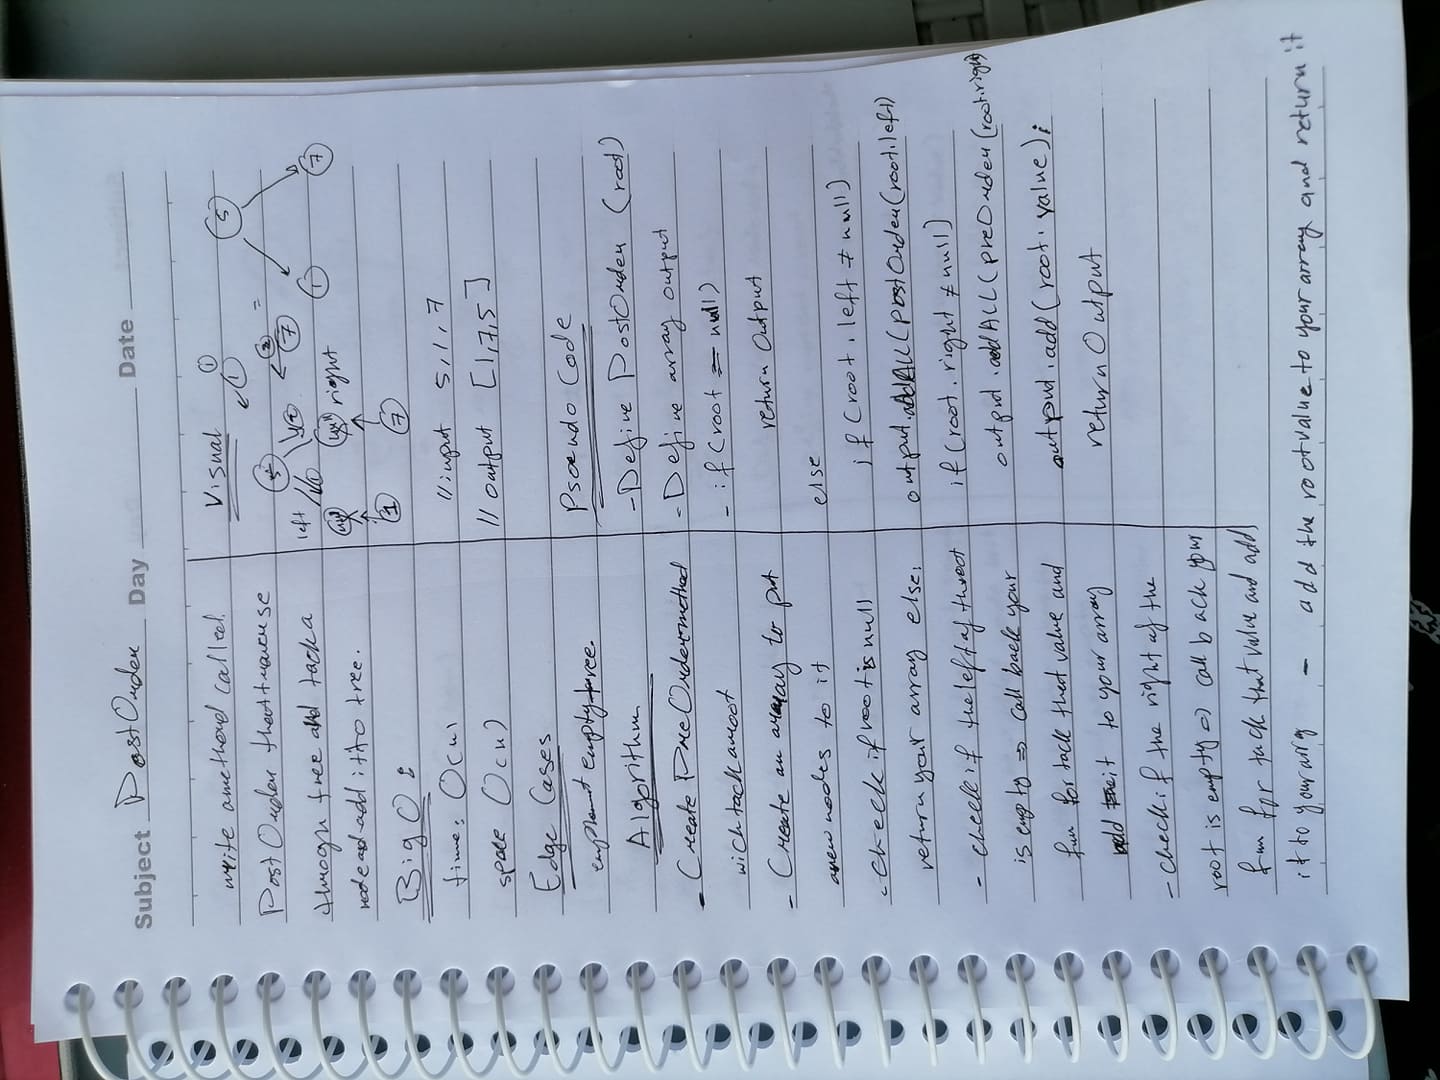 Subject PostOrder Day Date
write amethond called
PostOrder thattravense
through tree and tacka
node and add it to tree.
BigO:
time: O(n)
space O(n)
Edge Cases
empty tree.
Algorithm
- Create PreOrder method
wich tack a root
- Create an array to put
new nodes to it
- check if root is null
return your array else:
- check if the left of the root
is empty => call back your
fun for tack that value and
add it to your array
- check if the right of the
root is empty => call back your
fun for tack that value and add
it to your array - add the root value to your array and return it
Visual
5 7 1
left right
1 7
5
1 7
//input 5,1,7
//output [1,7,5]
Pseudo Code
- Define PostOrder (root)
- Define array output
- if (root = null)
return Output
else
if (root.left ≠ null)
output.addAll(postOrder(root.left)
if (root.right ≠ null)
output.addALL(preOrder(root.right
output.add(root.value);
return Output